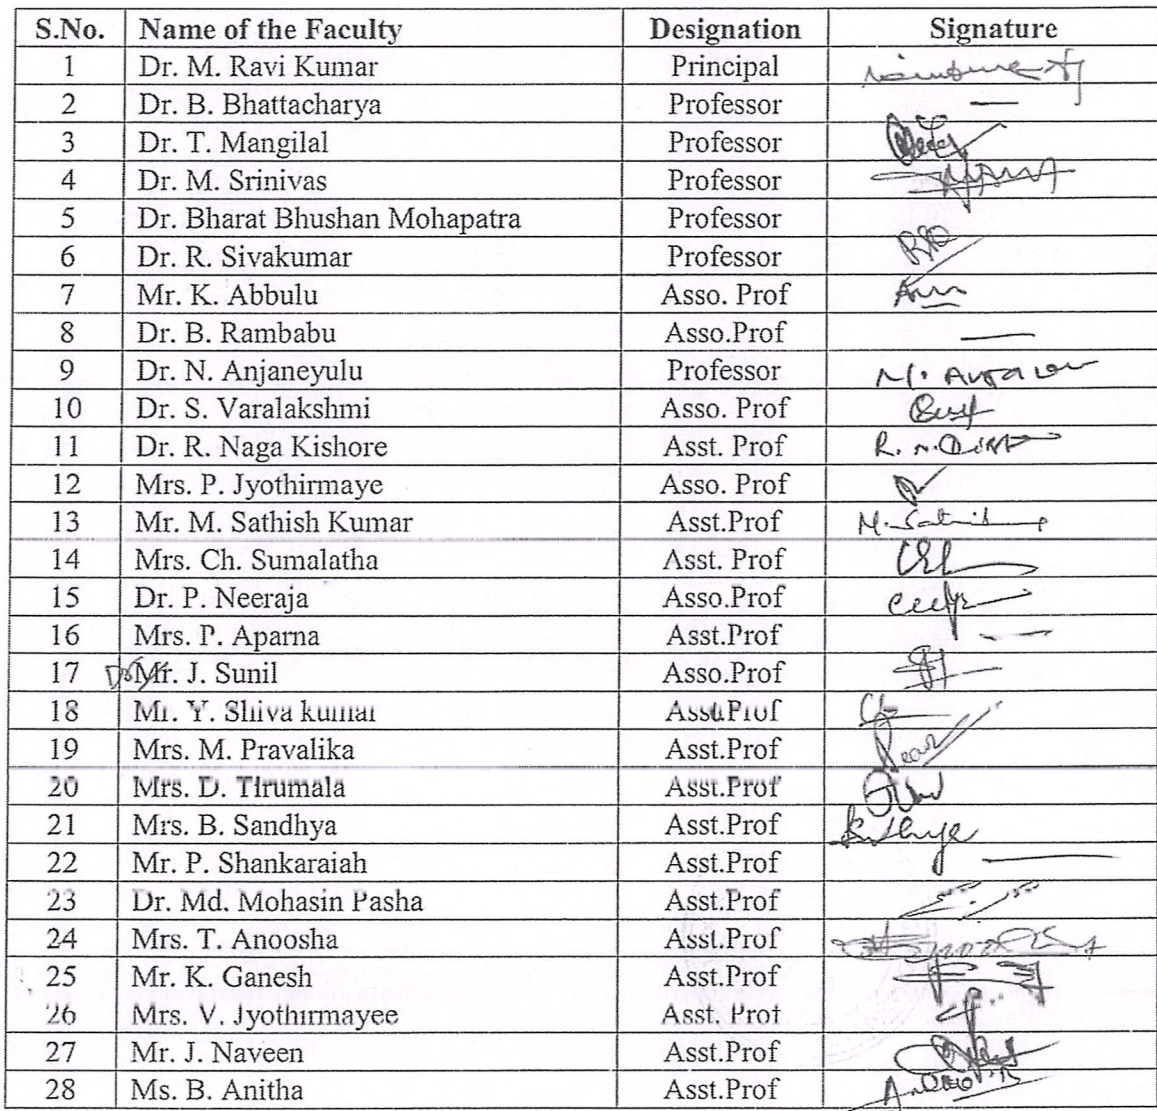 S.No. Name of the Faculty Designation Signature
1 Dr. M. Ravi Kumar Principal
2 Dr. B. Bhattacharya Professor —
3 Dr. T. Mangilal Professor
4 Dr. M. Srinivas Professor
5 Dr. Bharat Bhushan Mohapatra Professor
6 Dr. R. Sivakumar Professor
7 Mr. K. Abbulu Asso. Prof
8 Dr. B. Rambabu Asso.Prof —
9 Dr. N. Anjaneyulu Professor
10 Dr. S. Varalakshmi Asso. Prof
11 Dr. R. Naga Kishore Asst. Prof
12 Mrs. P. Jyothirmaye Asso. Prof
13 Mr. M. Sathish Kumar Asst.Prof
14 Mrs. Ch. Sumalatha Asst. Prof
15 Dr. P. Neeraja Asso.Prof
16 Mrs. P. Aparna Asst.Prof —
17 Mr. J. Sunil Asso.Prof
18 Mr. Y. Shiva kumar Prof
19 Mrs. M. Pravalika Asst.Prof
20 Mrs. D. Tirumala Asst.Prof
21 Mrs. B. Sandhya Asst.Prof
22 Mr. P. Shankaraiah Asst.Prof —
23 Dr. Md. Mohasin Pasha Asst.Prof
24 Mrs. T. Anoosha Asst.Prof
25 Mr. K. Ganesh Asst.Prof
26 Mrs. V. Jyothirmayee Asst. Prof
27 Mr. J. Naveen Asst.Prof
28 Ms. B. Anitha Asst.Prof